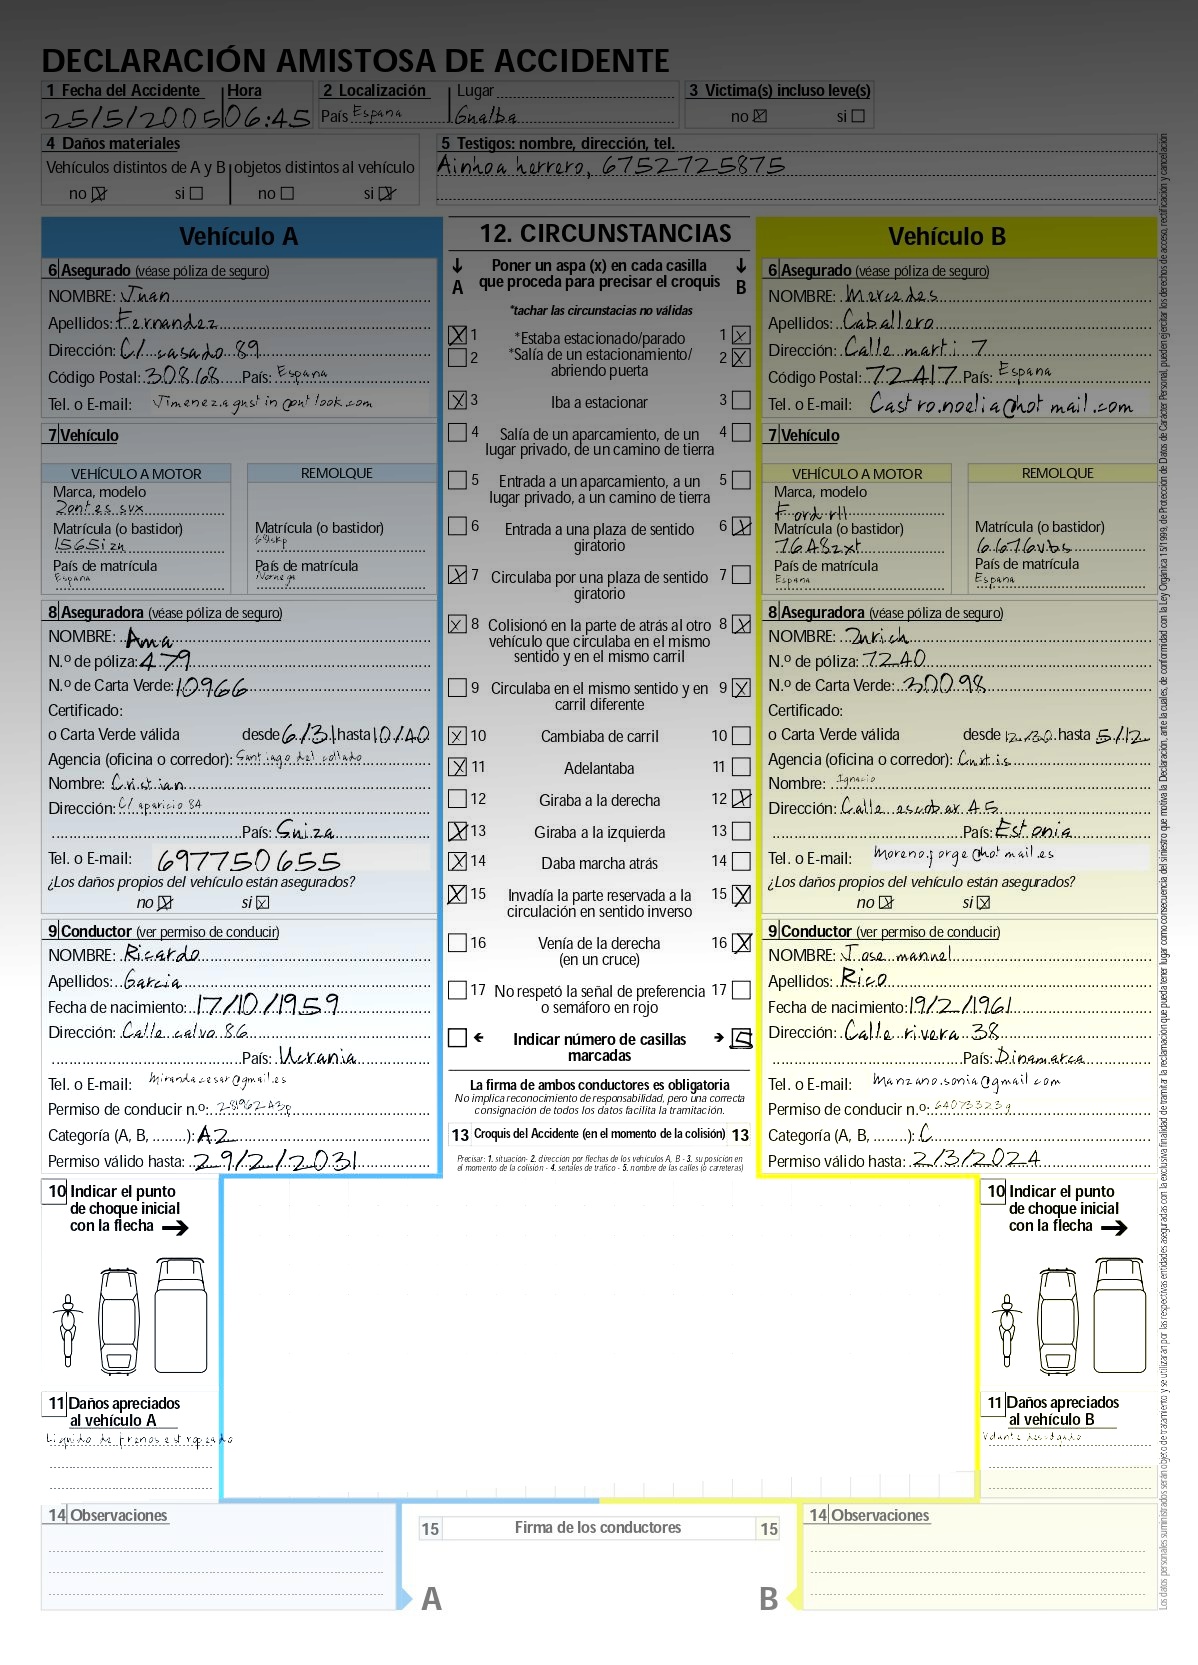 DECLARACIÓN AMISTOSA DE ACCIDENTE
1 Fecha del Accidente Hora 2 Localización Lugar 3 Victima(s) incluso leve(s)
25/5/2005 06:45 País Espana Gualba no si
4 Daños materiales 5 Testigos: nombre, dirección, tel.
Vehículos distintos de A y B objetos distintos al vehículo Ainhoa herrero, 6752725875
no si no si
Vehículo A
6 Asegurado (véase póliza de seguro)
NOMBRE: Juan
Apellidos: Fernandez
Dirección: C/ casado 89
Código Postal: 30868 País: Espana
Tel. o E-mail: Jimenez.agustin@outlook.com
7 Vehículo
VEHÍCULO A MOTOR REMOLQUE
Marca, modelo
Zontes svx
Matrícula (o bastidor) Matrícula (o bastidor)
1565izn
País de matrícula País de matrícula
Espana Noruega
8 Aseguradora (véase póliza de seguro)
NOMBRE: Ama
N.º de póliza: 479
N.º de Carta Verde: 10966
Certificado:
o Carta Verde válida desde 6/31 hasta 10/40
Agencia (oficina o corredor): Santiago del collado
Nombre: Cristian
Dirección: C/ aparicio 84
País: Suiza
Tel. o E-mail: 697750655
¿Los daños propios del vehículo están asegurados?
no si
9 Conductor (ver permiso de conducir)
NOMBRE: Ricardo
Apellidos: Garcia
Fecha de nacimiento: 17/10/1959
Dirección: Calle calvo 86
País: Ucrania
Tel. o E-mail: Mirandacesar@gmail.es
Permiso de conducir n.º: 28196243p
Categoría (A, B, ........): A2
Permiso válido hasta: 29/2/2031
10 Indicar el punto
de choque inicial
con la flecha
11 Daños apreciados
al vehículo A
Liquido de frenos estropeado
14 Observaciones
12. CIRCUNSTANCIAS
Poner un aspa (x) en cada casilla
A que proceda para precisar el croquis B
*tachar las circunstacias no válidas
1 *Estaba estacionado/parado 1
2 *Salía de un estacionamiento/ 2
abriendo puerta
3 Iba a estacionar 3
4 Salía de un aparcamiento, de un 4
lugar privado, de un camino de tierra
5 Entrada a un aparcamiento, a un 5
lugar privado, a un camino de tierra
6 Entrada a una plaza de sentido 6
giratorio
7 Circulaba por una plaza de sentido 7
giratorio
8 Colisionó en la parte de atrás al otro 8
vehículo que circulaba en el mismo
sentido y en el mismo carril
9 Circulaba en el mismo sentido y en 9
carril diferente
10 Cambiaba de carril 10
11 Adelantaba 11
12 Giraba a la derecha 12
13 Giraba a la izquierda 13
14 Daba marcha atrás 14
15 Invadía la parte reservada a la 15
circulación en sentido inverso
16 Venía de la derecha 16
(en un cruce)
17 No respetó la señal de preferencia 17
o semáforo en rojo
Indicar número de casillas 5
marcadas
La firma de ambos conductores es obligatoria
No implica reconocimiento de responsabilidad, pero una correcta
consignación de todos los datos facilita la tramitación.
13 Croquis del Accidente (en el momento de la colisión) 13
Precisar: 1. situación- 2. dirección por flechas de los vehículos A, B - 3. su posición en
el momento de la colisión - 4. señales de tráfico - 5. nombre de las calles (o carreteras)
15 Firma de los conductores 15
A B
Vehículo B
6 Asegurado (véase póliza de seguro)
NOMBRE: Mercedes
Apellidos: Caballero
Dirección: Calle marti 7
Código Postal: 72417 País: Espana
Tel. o E-mail: Castro.noelia@hotmail.com
7 Vehículo
VEHÍCULO A MOTOR REMOLQUE
Marca, modelo
Ford rll
Matrícula (o bastidor) Matrícula (o bastidor)
7648zxt 6676vbs
País de matrícula País de matrícula
Espana Espana
8 Aseguradora (véase póliza de seguro)
NOMBRE: Zurich
N.º de póliza: 7240
N.º de Carta Verde: 30098
Certificado:
o Carta Verde válida desde 12/30 hasta 5/12
Agencia (oficina o corredor): Curtis
Nombre: Ignacio
Dirección: Calle escobar 45
País: Estonia
Tel. o E-mail: Moreno.jorge@hotmail.es
¿Los daños propios del vehículo están asegurados?
no si
9 Conductor (ver permiso de conducir)
NOMBRE: Jose manuel
Apellidos: Rico
Fecha de nacimiento: 19/2/1961
Dirección: Calle rivera 38
País: Dinamarca
Tel. o E-mail: Manzano.sonia@gmail.com
Permiso de conducir n.º: 64073323g
Categoría (A, B, ........): C
Permiso válido hasta: 2/3/2024
10 Indicar el punto
de choque inicial
con la flecha
11 Daños apreciados
al vehículo B
Volante desidado
14 Observaciones
Los datos personales suministrados serán objeto de tratamiento y se utilizaran por las respectivas entidades aseguradas con la exclusiva finalidad de tramitar la reclamación que pueda tener lugar como consecuencia del siniestro que motiva la Declaración, ante la cuales, de conformidad con la Ley Orgánica 15/1999, de Protección de Datos de Carácter Personal, pueden ejercitar los derechos de acceso, rectificación y cancelación